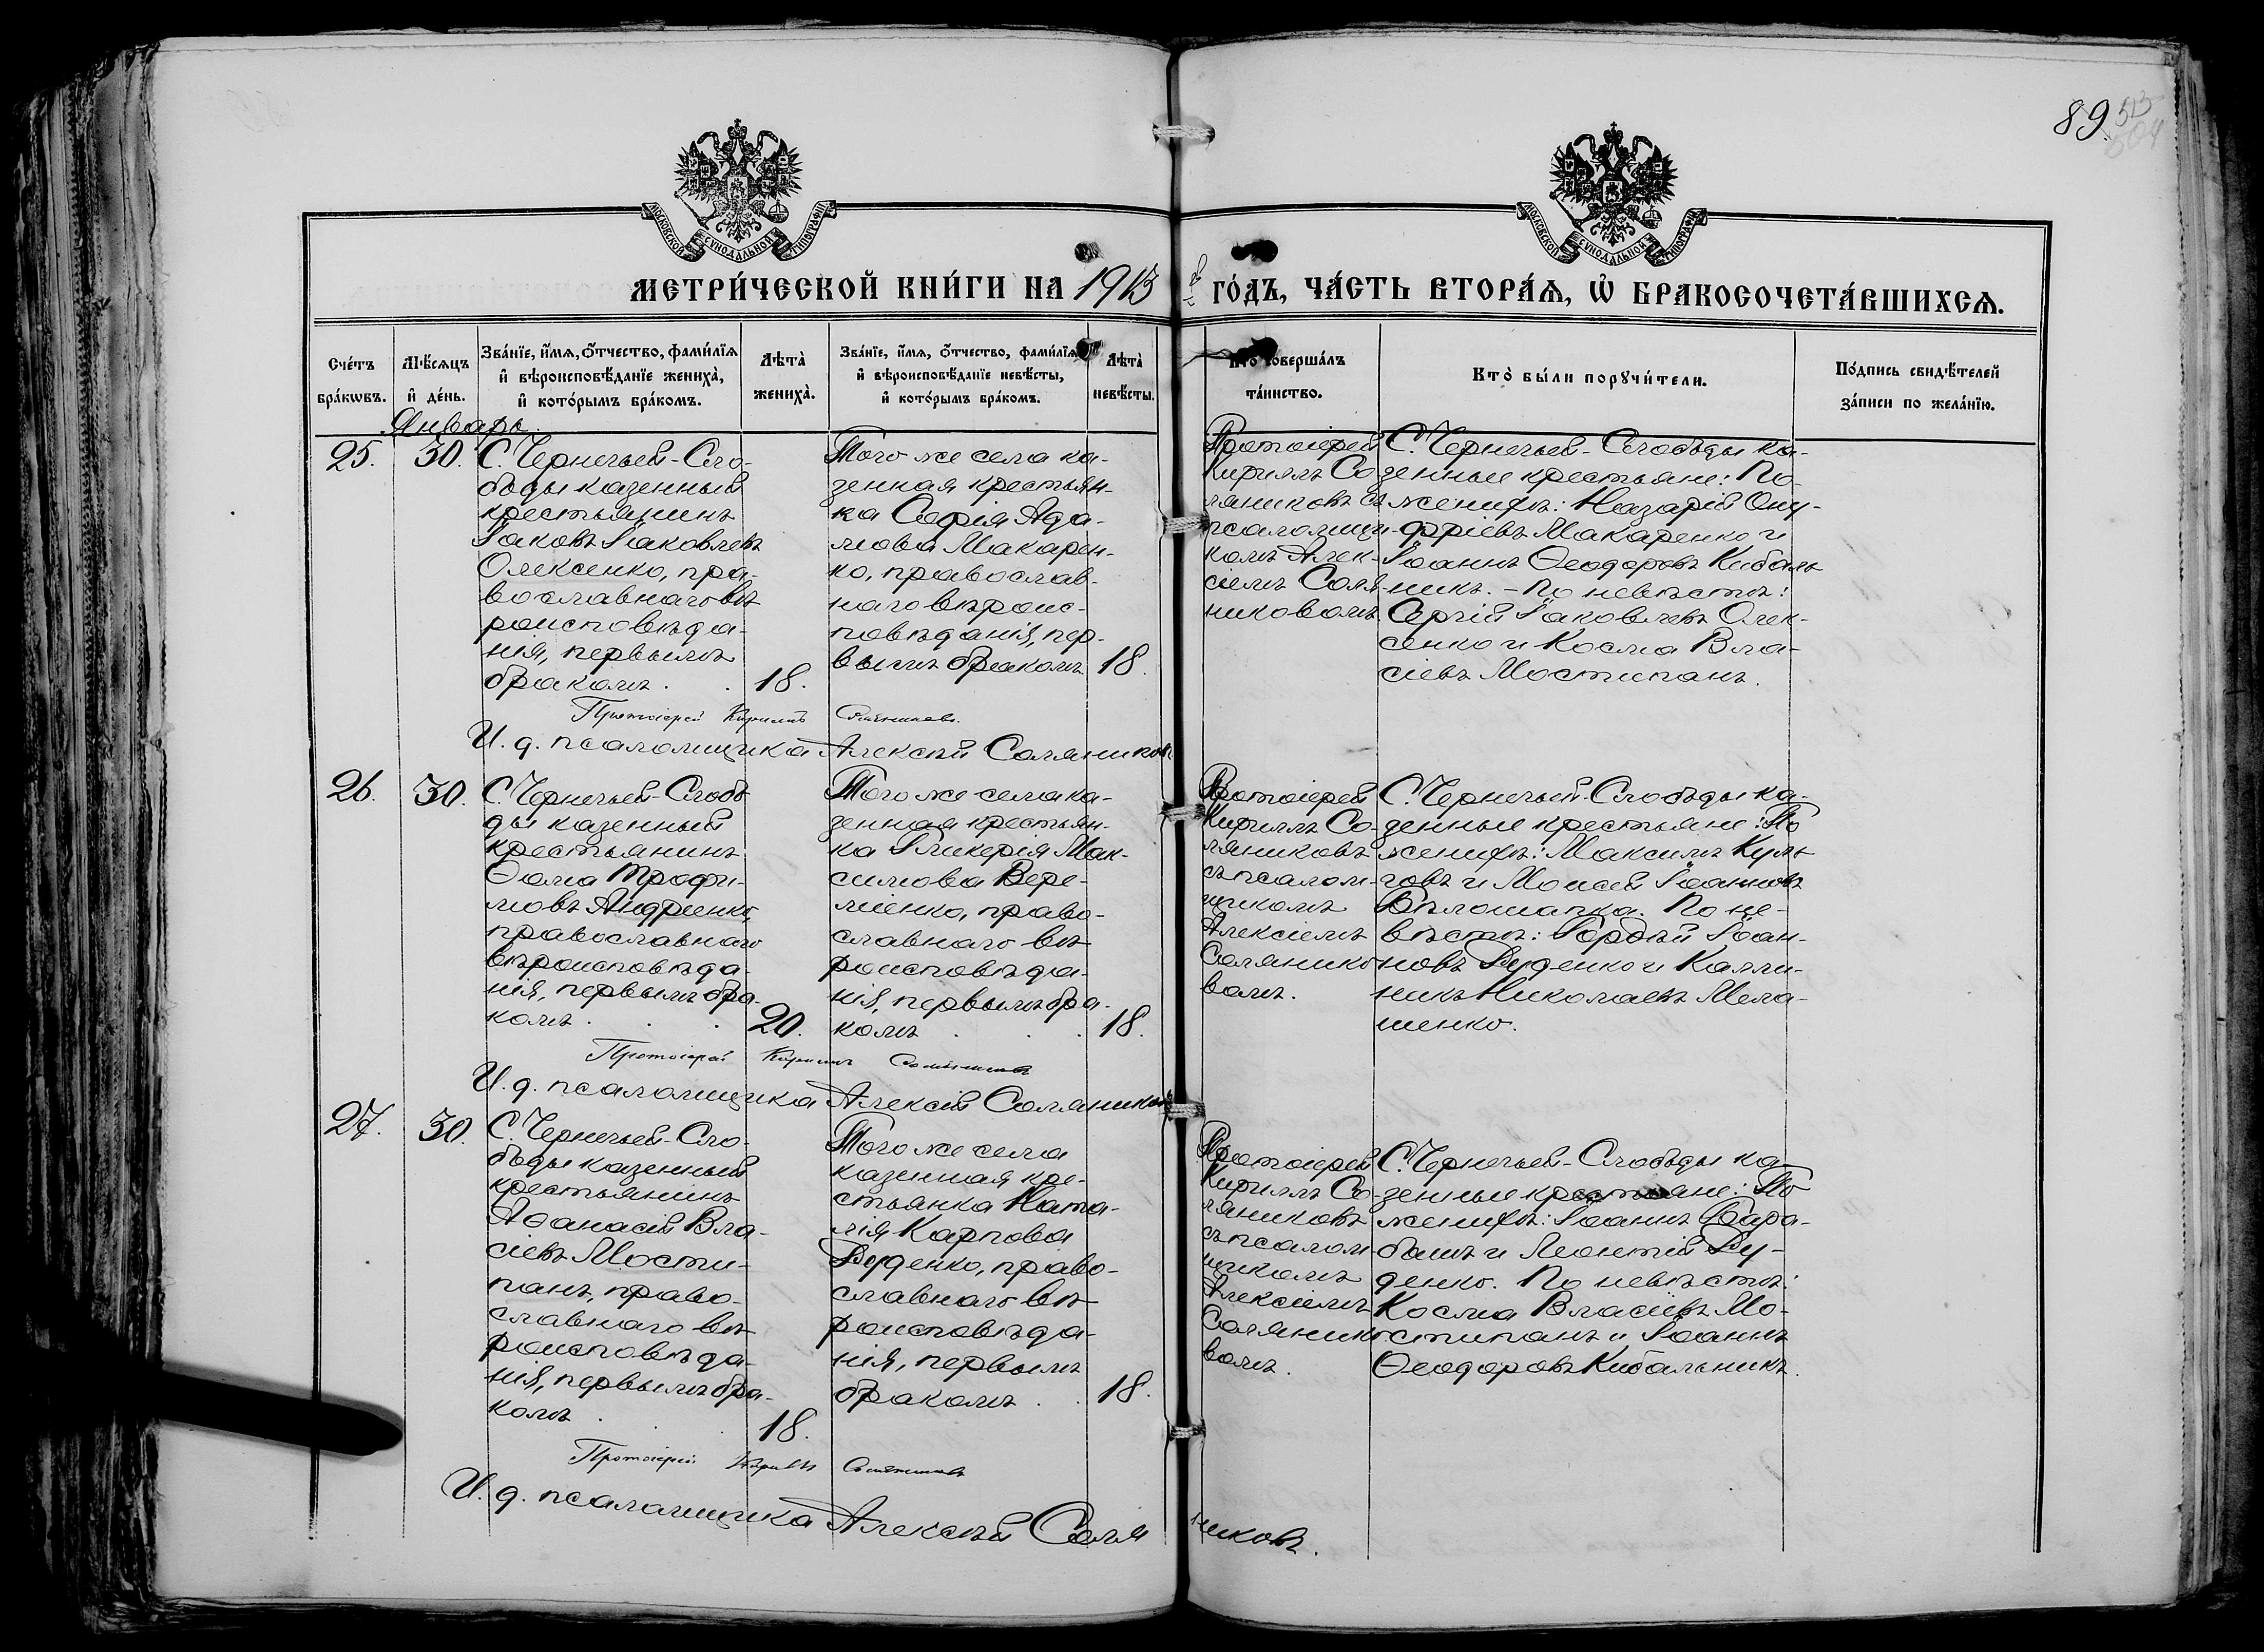 89.
МОСКОВСКОЙ СѴНОДАЛЬНОЙ ТИПОГРАФІИ
МОСКОВСКОЙ СѴНОДАЛЬНОЙ ТИПОГРАФІИ
МЕТРИ́ЧЕСКОЙ КНИ́ГИ НА 1913 ГО́ДЪ, ЧА́СТЬ ВТОРА́Ѧ, Ѽ БРАКОСОЧЕТА́ВШИХСѦ.
Сче́тъ
бра́кѡвъ.
Мѣ́сѧцъ
и҆ де́нь.
Зва́нїе, и҆́мѧ, ѻ҆́тчество, фами́лїѧ
и҆ вѣроисповѣ́данїе жениха̀,
и҆ кото́рымъ бра́комъ.
Лѣта̀
жениха̀.
Зва́нїе, и҆́мѧ, ѻ҆́тчество, фами́лїѧ
и҆ вѣроисповѣ́данїе невѣ́сты,
и҆ кото́рымъ бра́комъ.
Лѣта̀
невѣ́сты.
Кто̀ соверша́лъ
та́инство.
Кто̀ бы́ли порꙋчи́тели.
По́дпись свидѣ́телей
за́писи по жела́нїю.
Январь.
25.
30.
С. Чернечьей-Сло-
боды казенный
крестьянинъ
Іаковъ Іаковлевъ
Олексенко, пра-
вославнаго вѣ-
роисповѣда-
нія, первымъ
бракомъ . .
18.
Того же села ка-
зенная крестьян-
ка Софія Ада-
мова Макарен-
ко, православ-
наго вѣроис-
повѣданія, пер-
вымъ бракомъ.
18.
Протоіерей
Кириллъ Со-
ляниковъ съ
псаломщи-
комъ Алек-
сіемъ Соля-
никовымъ.
С. Чернечьей-Слободы ка-
зенные крестьяне: По
женихѣ: Назарій Ону-
фріевъ Макаренко и
Іоаннъ Ѳеодоровъ Кибаль-
никъ. - По невѣстѣ:
Сергій Іаковлевъ Олек-
сенко и Косма Вла-
сіевъ Мостипанъ.
Протоіерей Кириллъ Соляниковъ
И. д. псаломщика Алексѣй Соляниковъ
26.
30.
С. Чернечьей-Слобо-
ды казенный
крестьянинъ
Ѳома Трофи-
мовъ Андріенко,
православнаго
вѣроисповѣда-
нія, первымъ бра-
комъ . . .
20.
Того же села ка-
зенная крестьян-
ка Гликерія Мак-
симова Вере-
міенко, право-
славнаго вѣ-
роисповѣда-
нія, первымъ бра-
комъ . . .
18.
Протоіерей
Кириллъ Со-
ляниковъ
съ псалом-
щикомъ
Алексіемъ
Солянико-
вымъ.
С. Чернечьей-Слободы ка-
зенные крестьяне: По
женихѣ: Максимъ Куль-
говъ и Моисей Іоанновъ
Бѣлошапка. По не-
вѣстѣ: Гордѣй Іоан-
новъ Дуденко и Калли-
никъ Николаевъ Мела-
шенко.
Протоіерей Кириллъ Соляниковъ
И. д. псаломщика Алексій Соляниковъ
27.
30.
С. Чернечьей-Сло-
боды казенный
крестьянинъ
Аѳанасій Вла-
сіевъ Мости-
панъ, право-
славнаго вѣ-
роисповѣда-
нія, первымъ бра-
комъ . .
18.
Того же села
казенная кре-
стьянка Ната-
лія Карпова
Дуденко, право-
славнаго вѣ-
роисповѣда-
нія, первымъ
бракомъ . .
18.
Протоіерей
Кириллъ Со-
ляниковъ
съ псалом-
щикомъ
Алексіемъ
Солянико-
вымъ.
С. Чернечьей-Слободы ка-
зенные крестьяне: По
женихѣ: Іоаннъ
и Леонтій Ду-
денко. По невѣстѣ:
Косма Власіевъ Мо-
стипанъ и Іоаннъ
Ѳеодоровъ Кибальникъ.
Протоіерей Кириллъ Соляниковъ
И. д. псаломщика Алексѣй Соляниковъ.